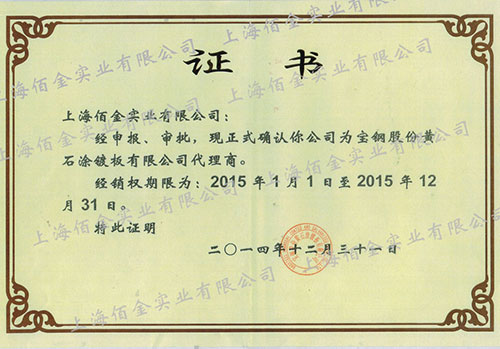 证 书
上海佰金实业有限公司：
经申报、审批，现正式确认你公司为宝钢股份黄
石涂镀板有限公司代理商。
经销权期限为：2015 年 1 月 1 日至 2015 年 12
月 31 日。
特此证明
二〇一四年十二月三十一日
上海佰金实业有限公司
上海佰金实业有限公司
上海佰金实业有限公司
上海佰金实业有限公司
上海佰金实业有限公司
上海佰金实业有限公司
上海佰金实业有限公司